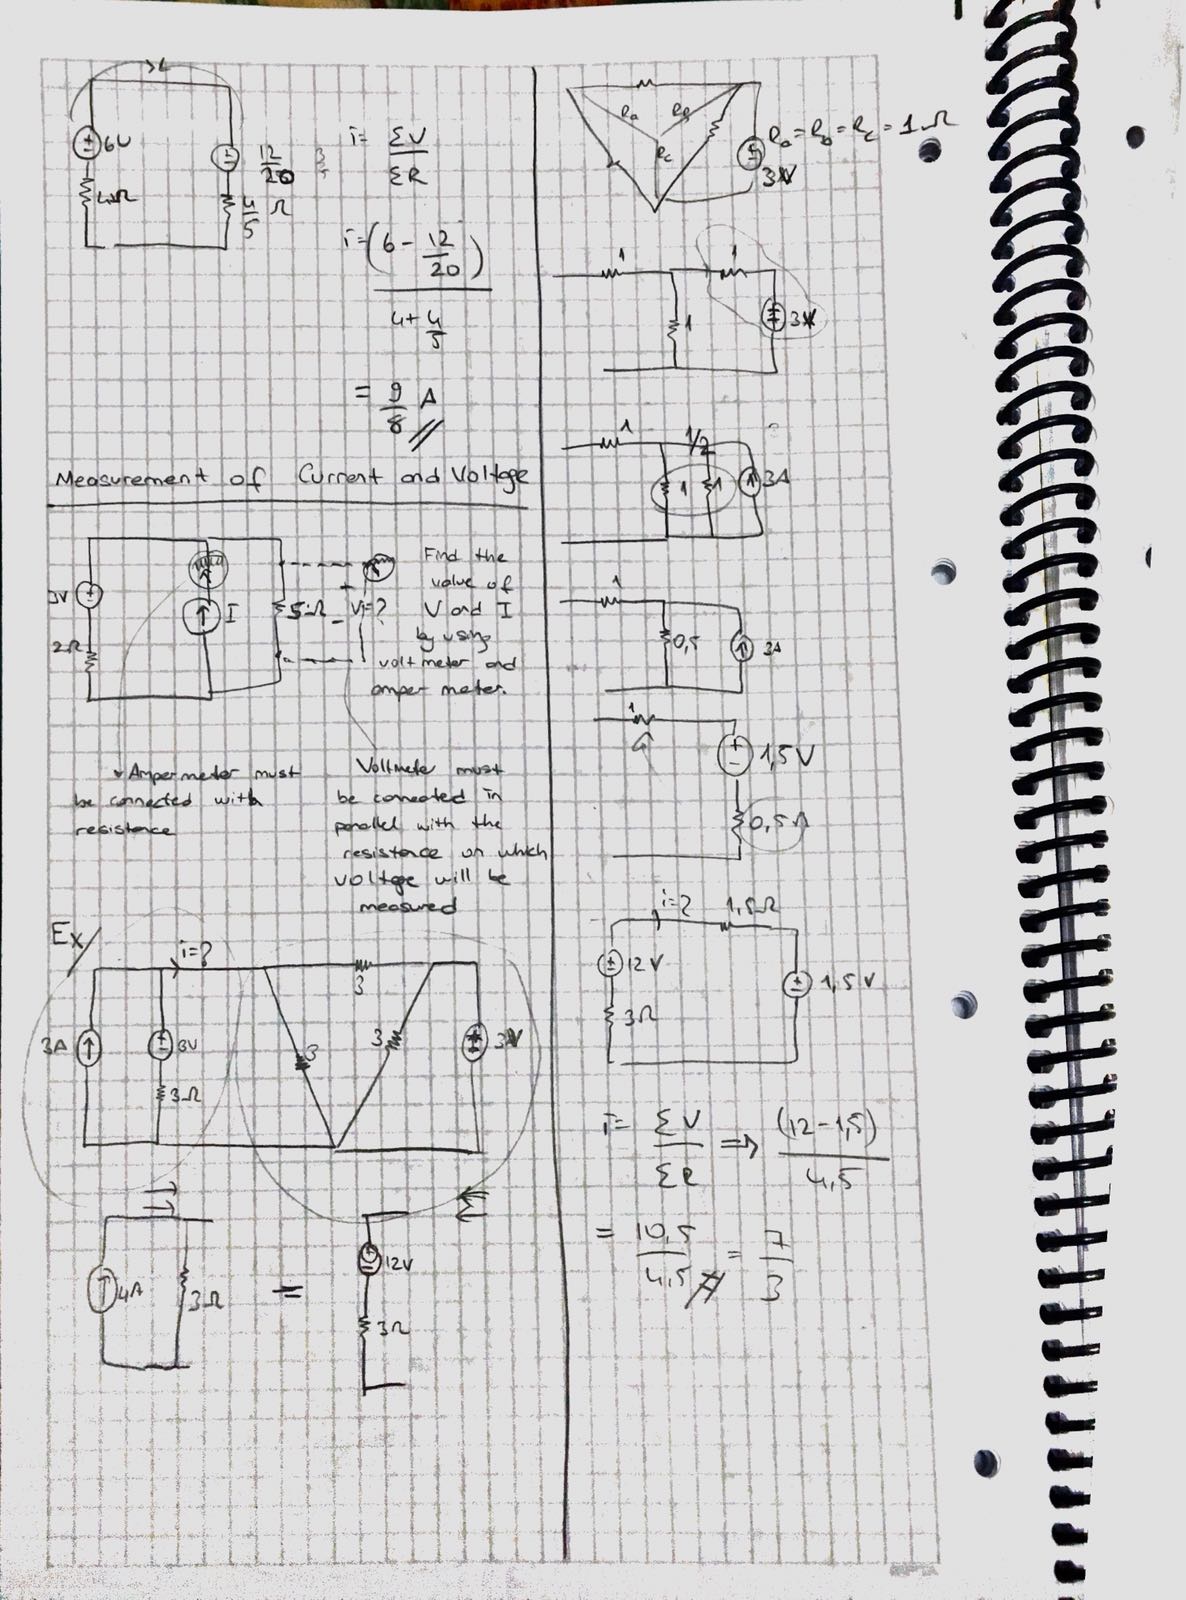 6V
4Ω
12/20
4/5 Ω
i = ΣV/ΣR
i = (6 - 12/20)
4 + 4/5
= 9/8 A
Measurement of Current and Voltage
3V
2Ω
I
5Ω
V=?
Find the
value of
V and I
by using
voltmeter and
amper meter.
Ampermeter must
be connected with
resistence
Voltmeter must
be connected in
parallel with the
resistence on which
voltage will be
measured
Ex/
i=?
3A
3V
3Ω
3
3
3
3V
4A
3Ω
=
12V
3Ω
Ra
Rb
Rc
Ra = Rb = Rc = 1Ω
3V
1
1
1
3V
1
1/2
1
1
3A
1
0,5
3A
1
1,5V
0,5Ω
i=?
1,5Ω
12V
3Ω
1,5V
i = ΣV/ΣR ⇒ (12-1,5)/4,5
= 10,5/4,5 = 7/3